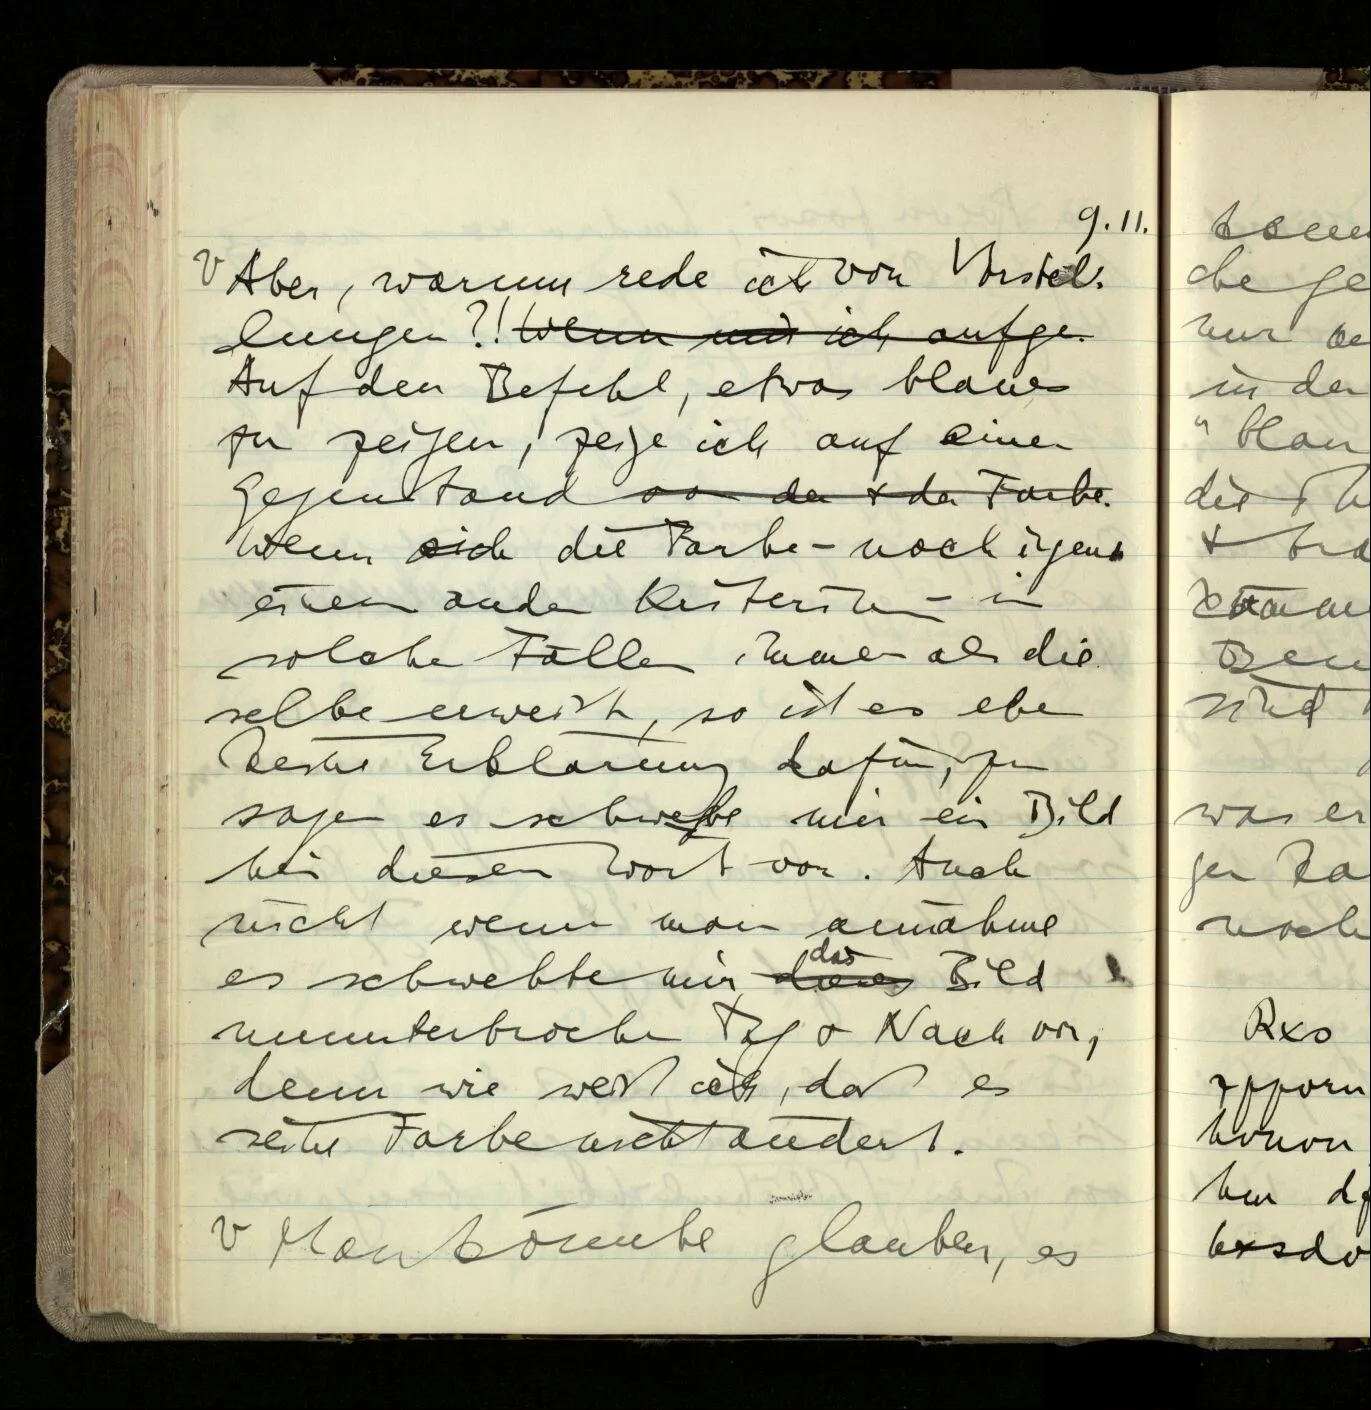 9.11.
V Aber, warum rede ich von Vorstel-
lungen?! Wenn mich aufge-
Auf den Befehl, etwas blaues
zu zeigen, zeige ich auf einen
Gegenstand von der & der Farbe.
Wenn sich die Farbe – nach irgend
einem andern Kriterium – in
solchen Fällen immer als die
selbe erweist, so ist es
keine Erklärung dafür, zu
sagen es schwebe mir ein Bild
bei diesem Wort vor. Auch
nicht wenn man annähme
das
es schwebte mir dieses Bild
ununterbrochen Tag & Nacht vor,
denn wie weiß ich, daß es
seine Farbe nicht ändert.
V Man könnte glauben, es
in der
"blau
was er
noch
Rxo